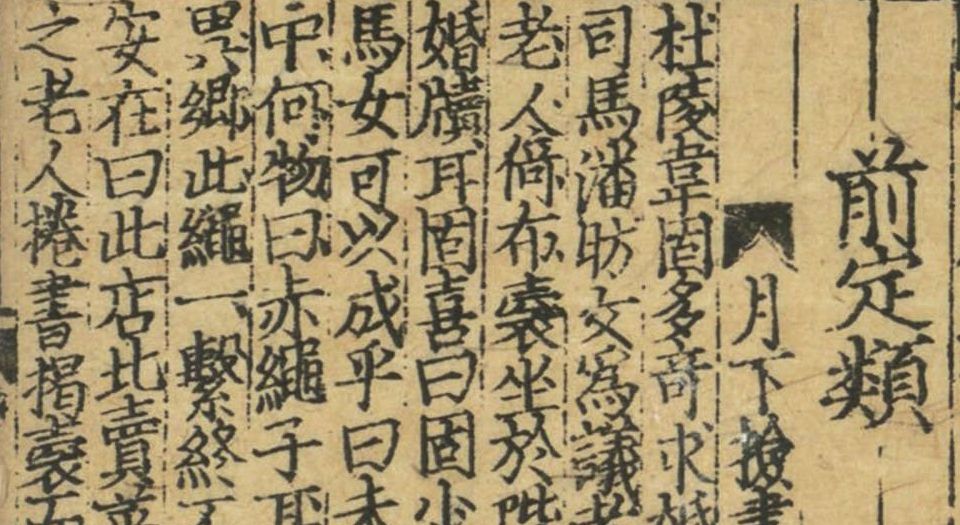 前定類
月下檢書
杜陵韋固多奇求婚
司馬潘昉女為議
老人倚布囊坐於
婚牘耳固喜曰固少
馬女可以成乎曰未
中何物曰赤繩子耳
異鄉此繩一繫終不
安在曰此店北賣菜
之老人捲書揭囊而